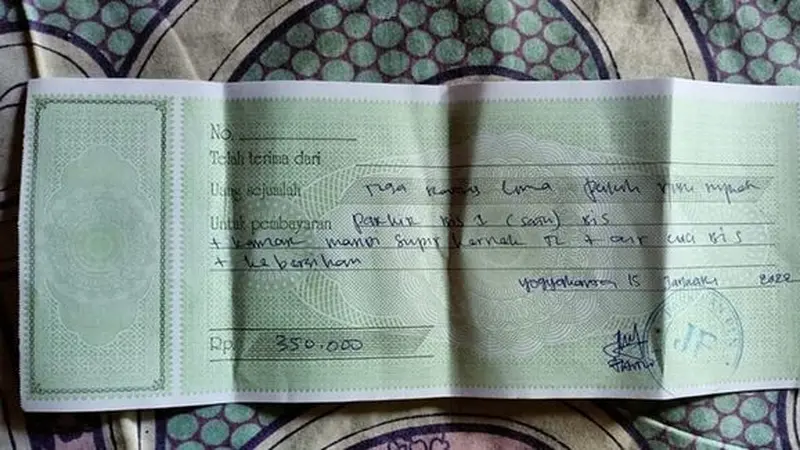 No.
Telah terima dari
Uang sejumlah tiga ratus lima puluh ribu rupiah
Untuk pembayaran parkir bis 1 (satu) bis
+ kamar mandi supir kernek TL + air cuci bis
+ kebersihan
Yogyakarta 15 Januari 2022
Rp. 350.000